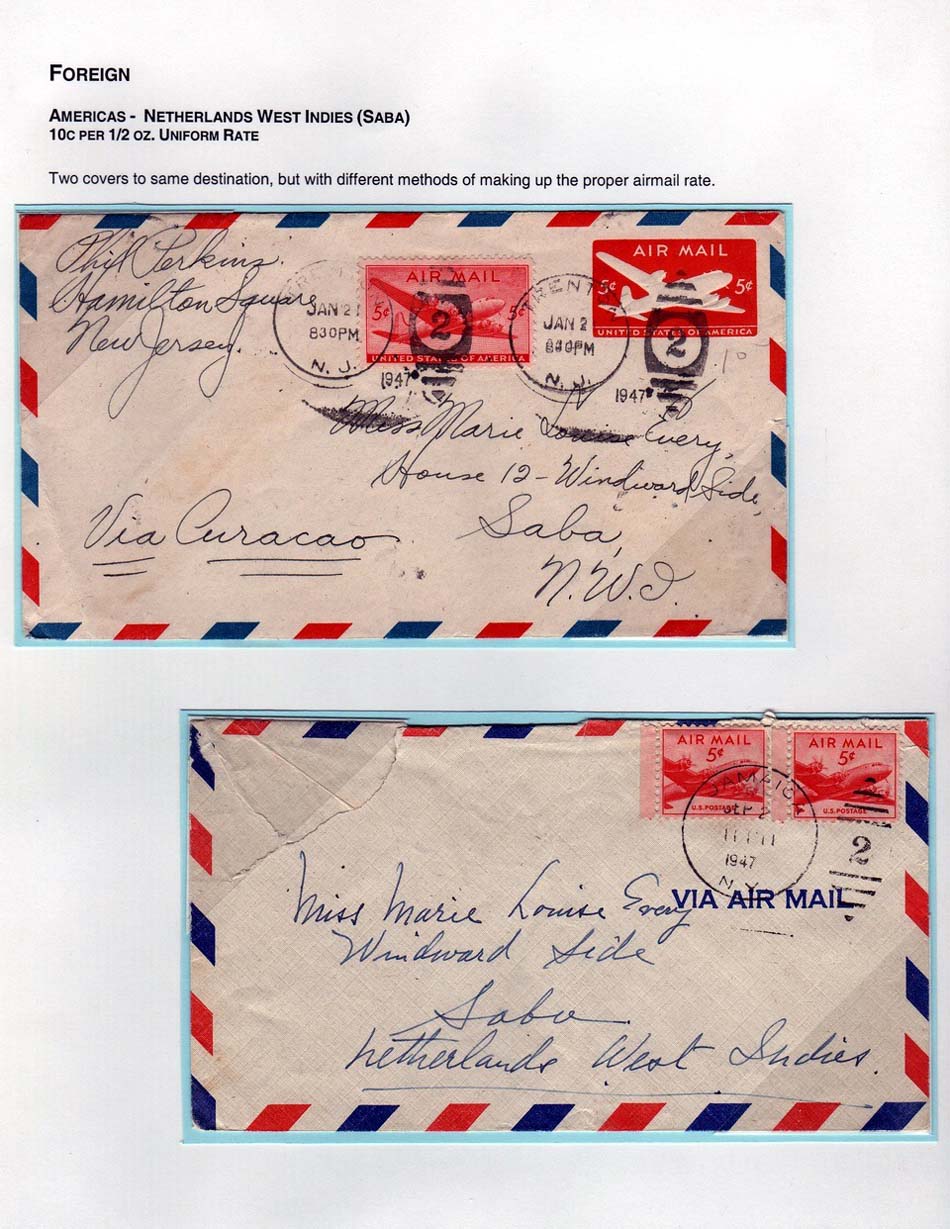 FOREIGN
AMERICAS - NETHERLANDS WEST INDIES (SABA)
10C PER 1/2 OZ. UNIFORM RATE
Two covers to same destination, but with different methods of making up the proper airmail rate.
Phil Perkins.
Hamilton Square
New Jersey.
AIR MAIL
5¢ 5¢
UNITED STATES OF AMERICA
TRENTON
JAN 21
830PM
N. J.
1947
2
AIR MAIL
5¢ 5¢
UNITED STATES OF AMERICA
TRENTON
JAN 2
PM
N. J.
1947
2
10
Miss Marie Louise Every,
House 12 - Windward Side,
Saba,
N.W.I.
Via Curacao
AIR MAIL
5¢
U.S. POSTAGE
AIR MAIL
5¢
U.S. POSTAGE
JAMAICA
SEP 2
1947
N. Y.
2
VIA AIR MAIL
Miss Marie Louise Every
Windward Side
Saba
Netherlands West Indies.